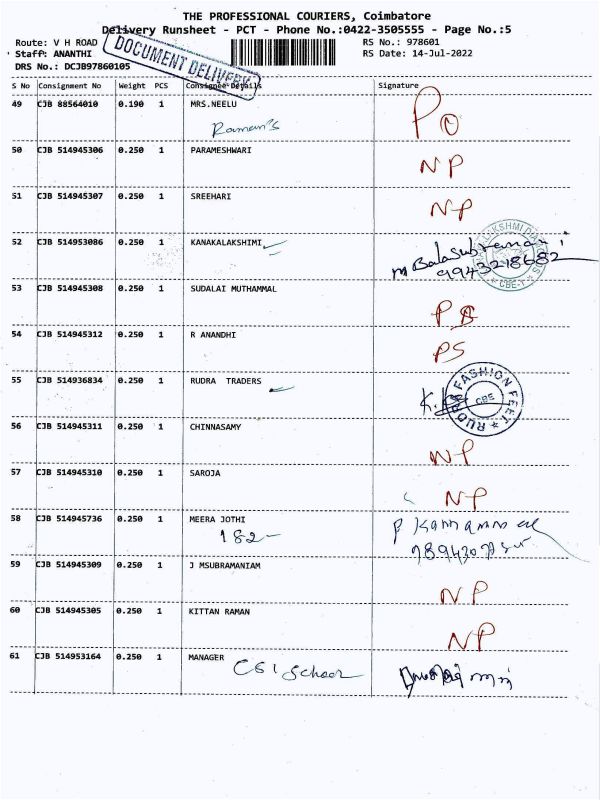 THE PROFESSIONAL COURIERS, Coimbatore
Delivery Runsheet - PCT - Phone No.:0422-3505555 - Page No.:5
Route: V H ROAD RS No.: 978601
Staff: ANANTHI RS Date: 14-Jul-2022
DRS No.: DCJB97860105
DOCUMENT DELIVERY
S No Consignment No Weight PCS Consignee Details Signature
49 CJB 88564010 0.190 1 MRS.NEELU
Raman's
50 CJB 514945306 0.250 1 PARAMESHWARI NP
51 CJB 514945307 0.250 1 SREEHARI NP
52 CJB 514953086 0.250 1 KANAKALAKSHMI M Balasubramani
9943218682
CBE-1
53 CJB 514945308 0.250 1 SUDALAI MUTHAMMAL
54 CJB 514945312 0.250 1 R ANANDHI PS
55 CJB 514936834 0.250 1 RUDRA TRADERS
FASHION FEET CBE
56 CJB 514945311 0.250 1 CHINNASAMY NP
57 CJB 514945310 0.250 1 SAROJA NP
58 CJB 514945736 0.250 1 MEERA JOTHI
182-
59 CJB 514945309 0.250 1 J MSUBRAMANIAM NP
60 CJB 514945305 0.250 1 KITTAN RAMAN NP
61 CJB 514953164 0.250 1 MANAGER
CSI School